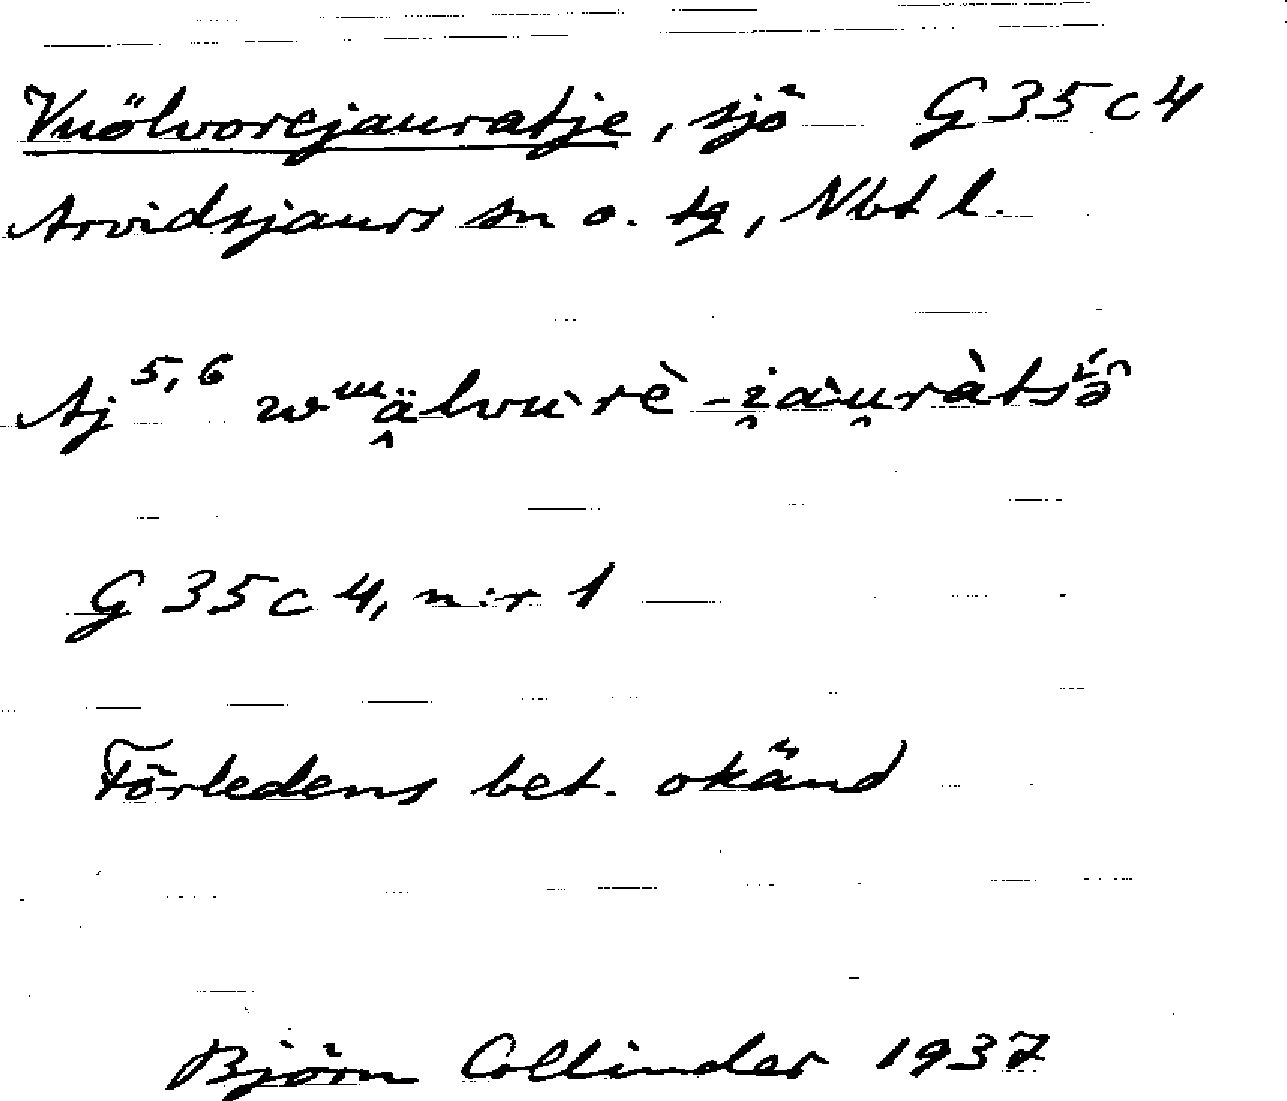 Vuölvorejauratje, sjö G 35 c 4
Arvidsjaurs sn o. tg, Nbt l.
Aj 5, 6
G 35 c 4, n:r 1
Förledens bet. okänd
Björn Collinder 1937